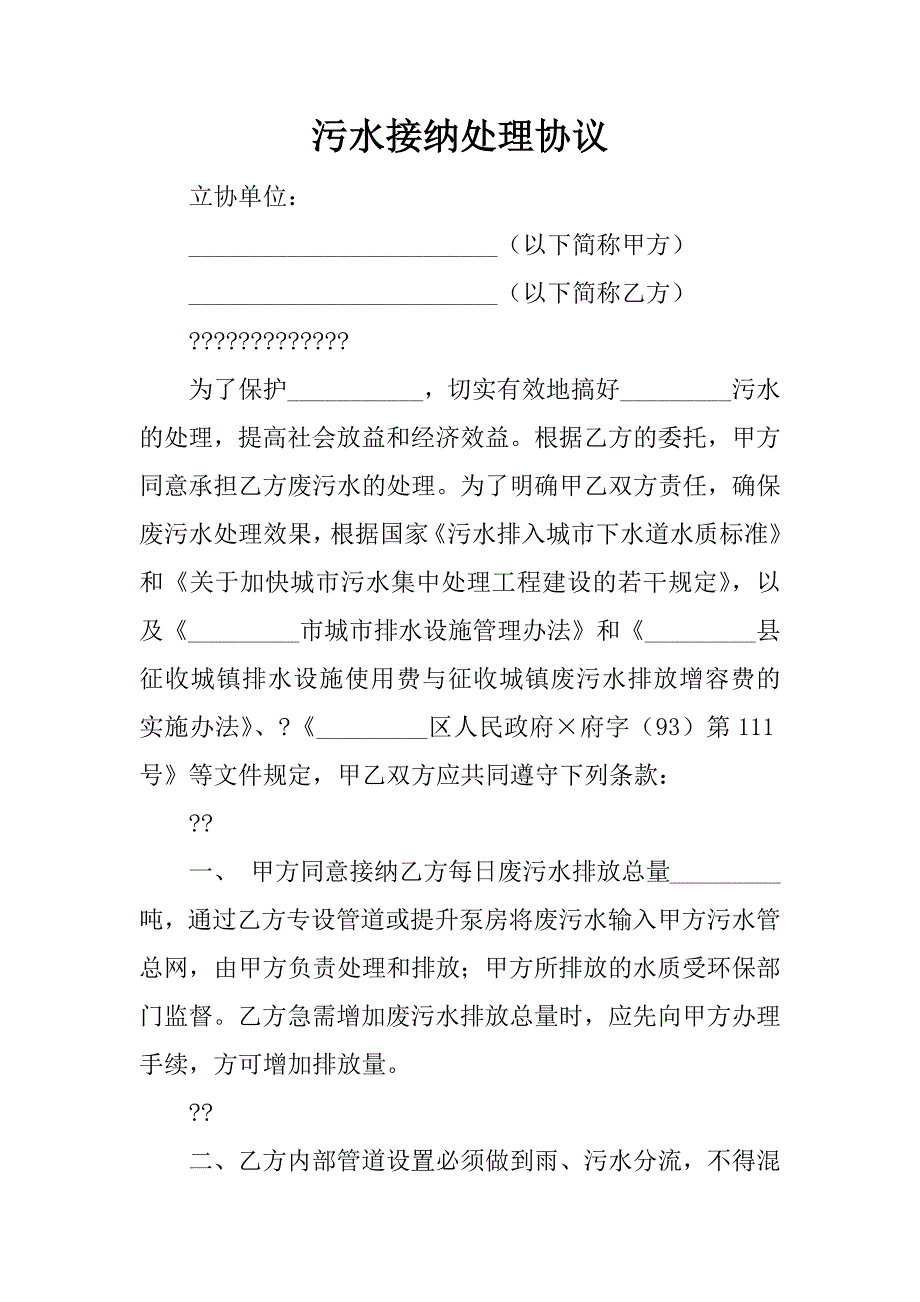 污水接纳处理协议
立协单位：
_________________________（以下简称甲方）
_________________________（以下简称乙方）
?????????????
为了保护___________，切实有效地搞好_________污水
的处理，提高社会放益和经济效益。根据乙方的委托，甲方
同意承担乙方废污水的处理。为了明确甲乙双方责任，确保
废污水处理效果，根据国家《污水排入城市下水道水质标准》
和《关于加快城市污水集中处理工程建设的若干规定》，以
及《_________市城市排水设施管理办法》和《_________县
征收城镇排水设施使用费与征收城镇废污水排放增容费的
实施办法》、?《_________区人民政府×府字（93）第 111
号》等文件规定，甲乙双方应共同遵守下列条款：
??
一、 甲方同意接纳乙方每日废污水排放总量_________
吨，通过乙方专设管道或提升泵房将废污水输入甲方污水管
总网，由甲方负责处理和排放；甲方所排放的水质受环保部
门监督。乙方急需增加废污水排放总量时，应先向甲方办理
手续，方可增加排放量。
??
二、乙方内部管道设置必须做到雨、污水分流，不得混